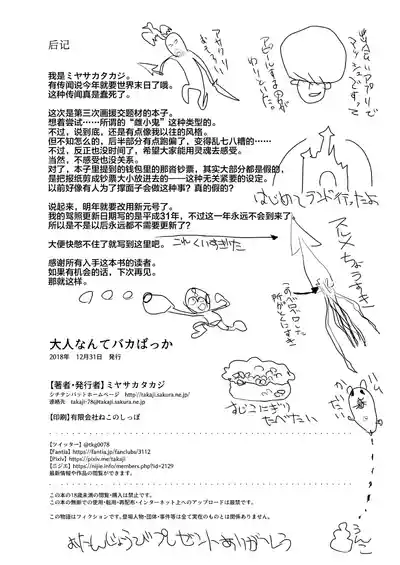 后记
我是ミヤサカタカジ。
有传闻说今年就要世界末日了哦。
这种传闻真是蠢死了。
这次是第三次画援交题材的本子。
想着尝试……所谓的“雌小鬼”这种类型的。
不过，说到底，还是有点像我以往的风格。
但不知怎么的，后半部分有点跑偏了，变得乱七八糟的……
不过，反正也没时间了，希望大家能用灵魂去感受。
当然，不感受也没关系。
对了，本子里提到的钱包里的那沓钞票，其实大部分都是假的，
是把报纸剪成钞票大小放进去的——这种无关紧要的设定。
以前好像有人为了撑面子会做这种事？真的假的？
说起来，明年就要改用新元号了。
我的驾照更新日期写的是平成31年，不过这一年永远不会到来了。
所以是不是以后永远都不需要更新了？
大便快憋不住了就写到这里吧。
感谢所有入手这本书的读者。
如果有机会的话，下次再见。
那就这样。
大人なんてバカばっか
2018年　12月31日　発行
【著者・発行者】ミヤサカタカジ
シチテンバットホームページ　http://takaji.sakura.ne.jp/
連絡先　takaji-78@takaji.sakura.ne.jp
【印刷】有限会社ねこのしっぽ
【ツイッター】@tkg0078
【Fantia】https://fantia.jp/fanclubs/3112
【Pixiv】https://pixiv.me/takaji
【ニジエ】https://nijie.info/members.php?id=2129
最新情報や作品の閲覧ができます。
この本の18歳未満の閲覧・購入は禁止です。
この本の無断での使用・転用・再配布・インターネット上へのアップロードは厳禁です。
この物語はフィクションです。登場人物・団体・事件等は全て実在のものとは関係ありません。
はじめてランド行ったよ
これくいすぎた
むしょうに
たべたい
うんこ
おたんじょうびプレゼントありがとう